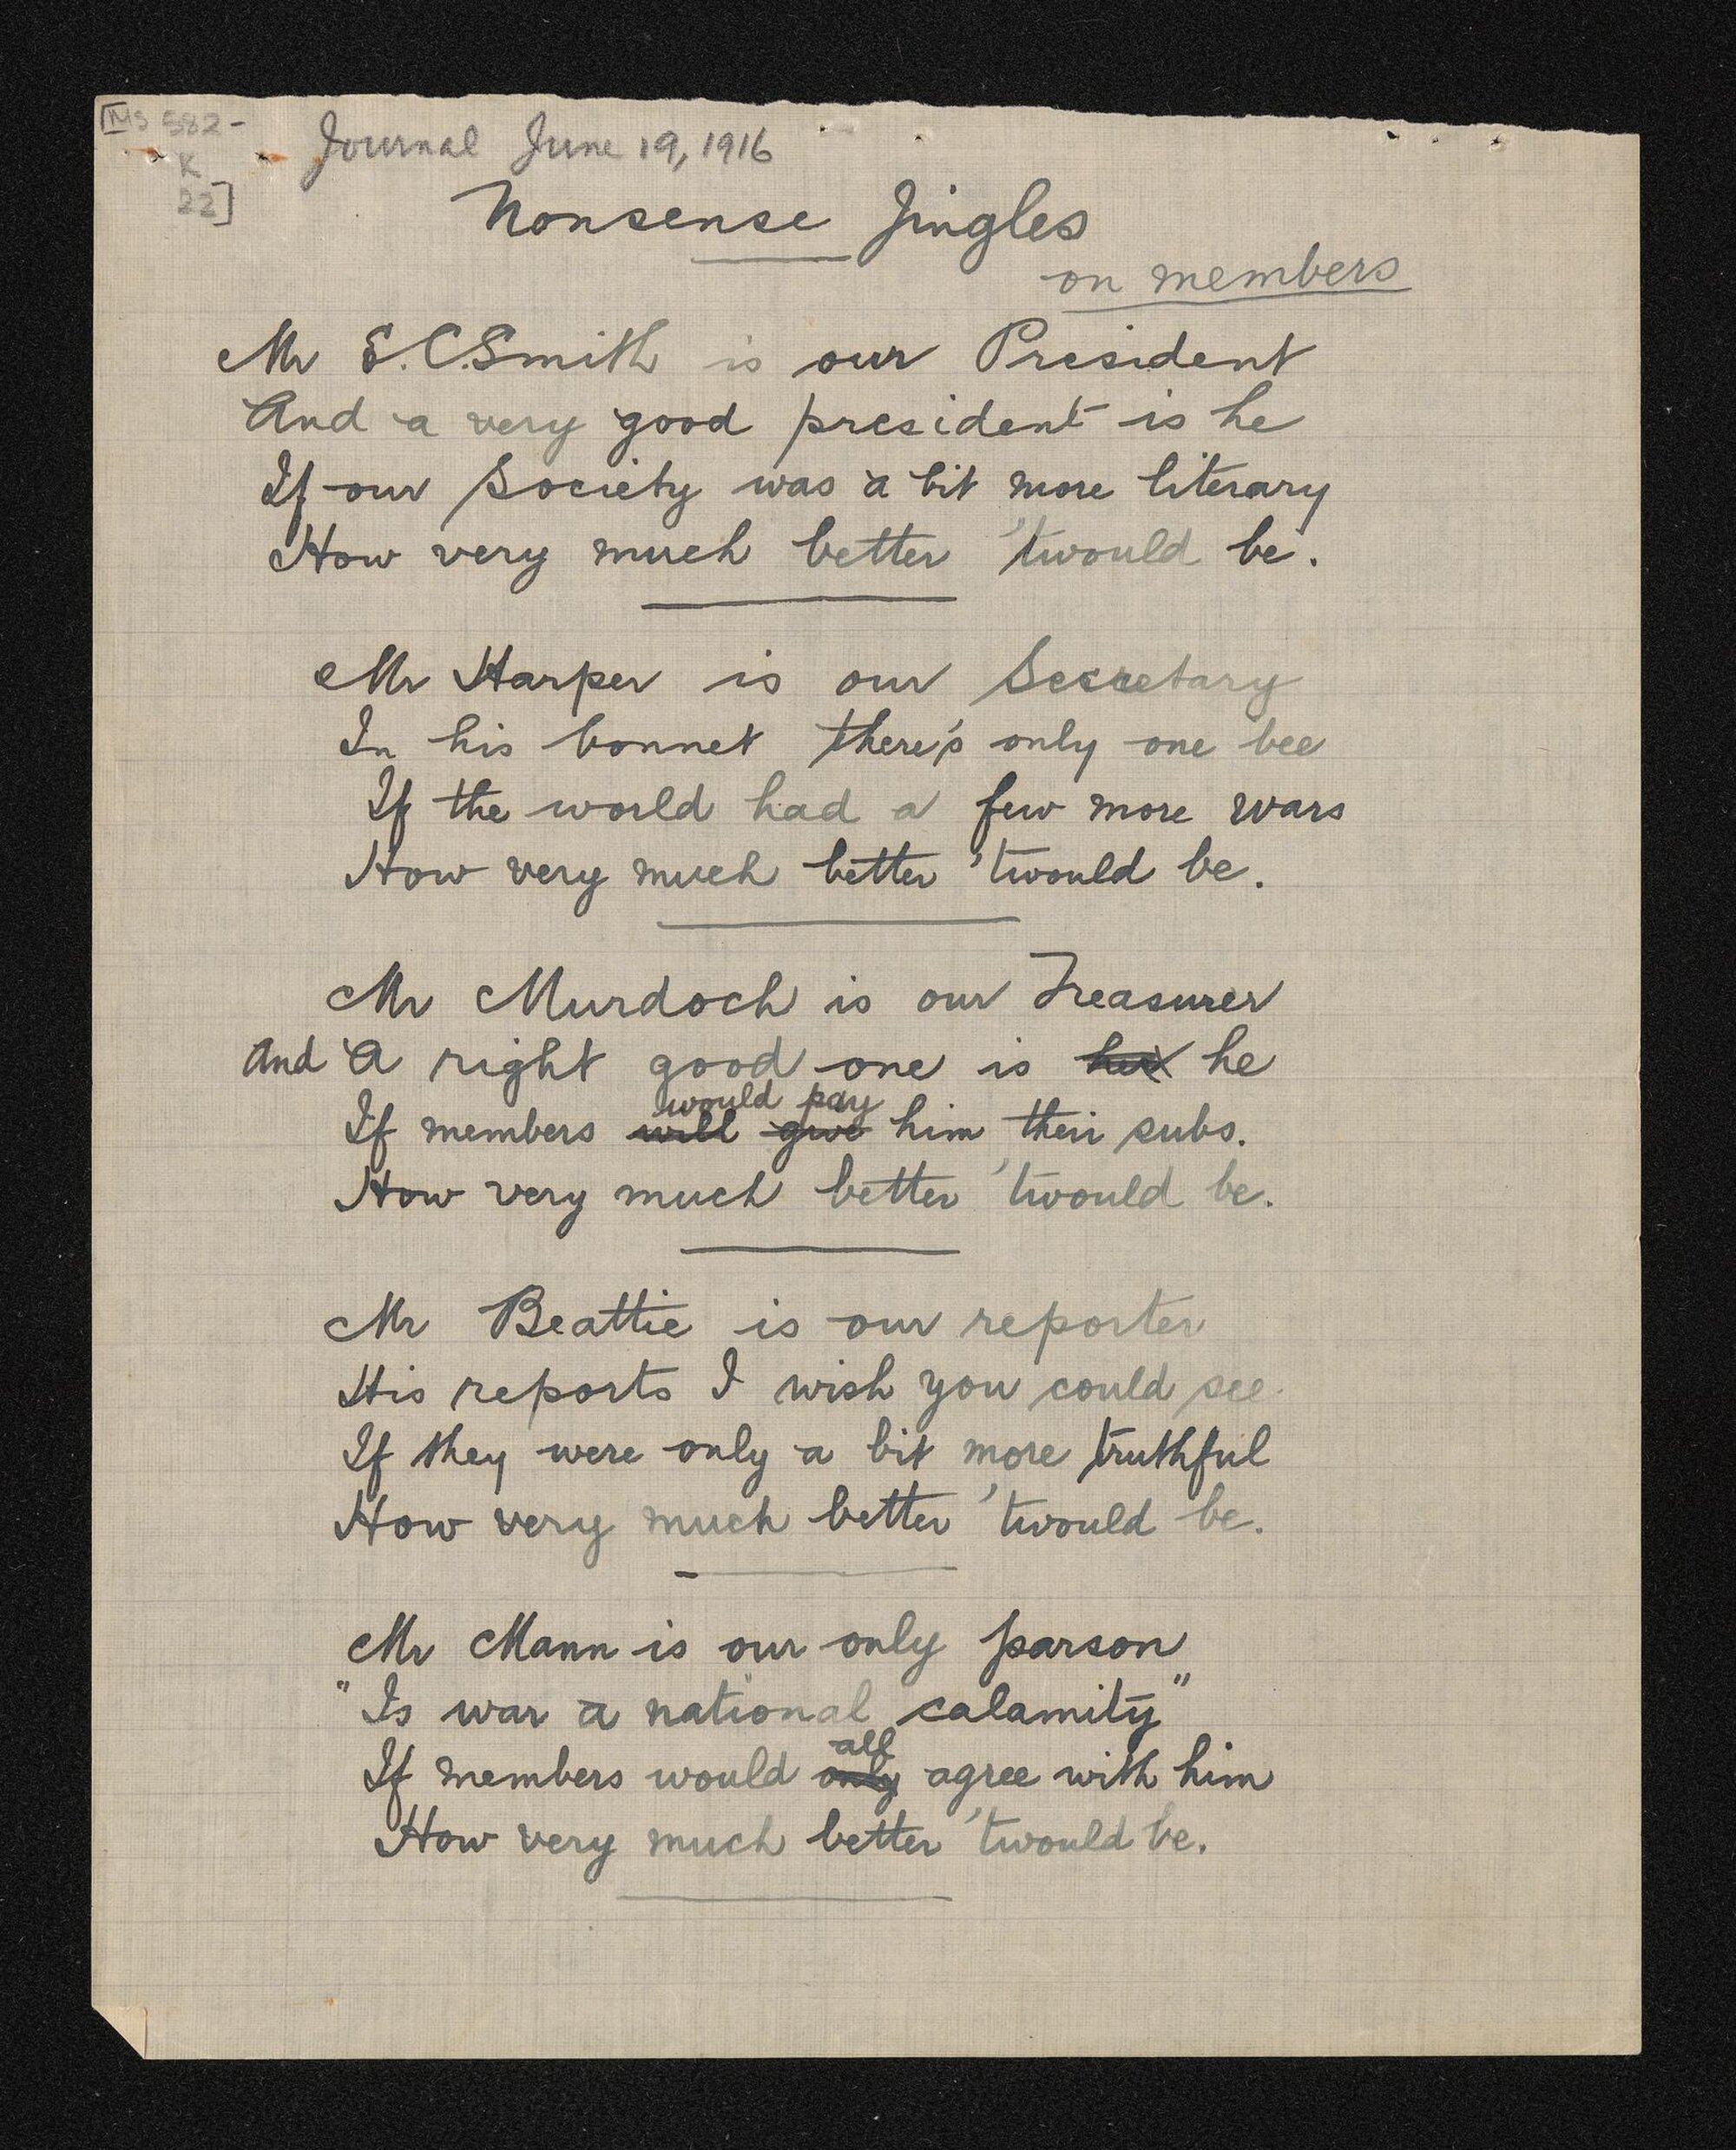 [MS 582-
K
22]
Journal June 19, 1916
Nonsense Jingles
on members
Mr E.C.Smith is our President
And a very good president is he
If our Society was a bit more literary
How very much better 'twould be.
Mr Harper is our Secretary
In his bonnet there's only one bee
If the world had a few more wars
How very much better 'twould be.
Mr Murdoch is our Treasurer
And A right good one is he
would pay
If members will give him their subs.
How very much better 'twould be.
Mr Beattie is our reporter
His reports I wish you could see.
If they were only a bit more truthful
How very much better 'twould be.
Mr Mann is our only parson
"Is war a national calamity"
all
If members would only agree with him
How very much better 'twould be.